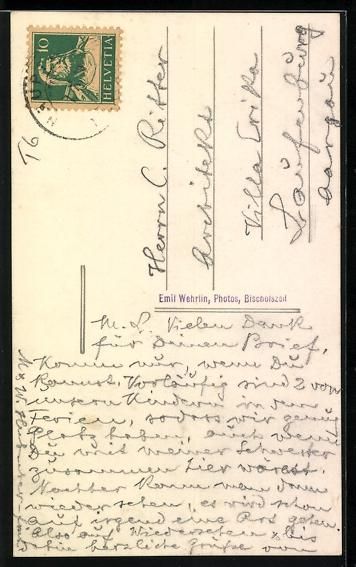 10
HELVETIA
Herrn C. Ritter
Architekt
Villa Erika
Laufenburg
Aargau
Emil Wehrlin, Photos, Bischofszell
M. L. Vielen Dank
für Deinen Brief,
Komm nur, wenn Du
kannst. Vorläufig sind 2 von
unsern Kindern in den
Ferien, sodass wir genug
Platz haben, auch wenn
Du mit meiner Schwester
zusammen hier wärest.
Nachher kann man dann
wiedersehen, es wird schon
auf irgend eine Art gehen.
Also auf Wiedersehen & bis
dahin herzliche Grüsse von